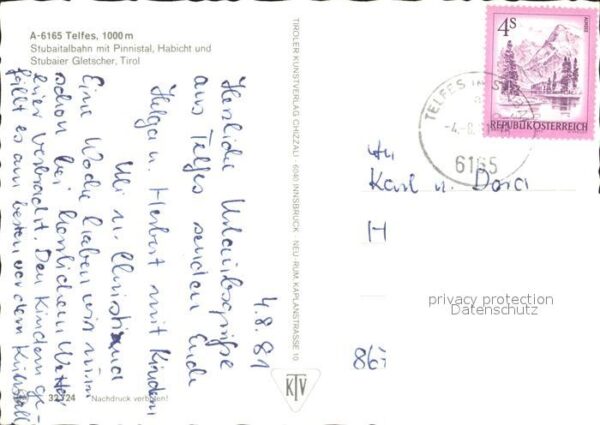 A-6165 Telfes, 1000 m
Stubaitalbahn mit Pinnistal, Habicht und
Stubaier Gletscher, Tirol
4.8.81
Herzliche Urlaubsgrüße
aus Telfes senden Euch
Helga u. Herbert mit Kindern
Uli u. Christina
Eine Woche haben wir nun
schon bei herrlichem Wetter
hier verbracht. Den Kindern ge-
fällt es am besten vor dem
32724 Nachdruck verboten!
TIROLER KUNSTVERLAG CHIZZALI · 6040 INNSBRUCK - NEU RUM, KAPLANSTRASSE 10
KTV
4S
ALMSEE
REPUBLIK ÖSTERREICH
TELFES IM
-4.-8.
6165
An
Karl u. Dora
H
867
privacy protection
Datenschutz